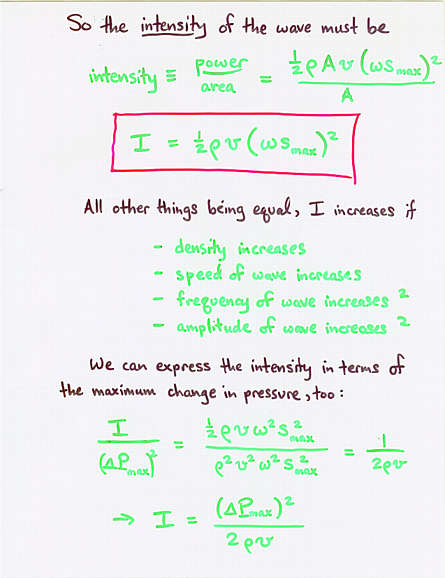 So the intensity of the wave must be
intensity ≡ power/area = ½ρAv(ωs_max)²/A
I = ½ρv(ωs_max)²
All other things being equal, I increases if
- density increases
- speed of wave increases
- frequency of wave increases ²
- amplitude of wave increases ²
We can express the intensity in terms of
the maximum change in pressure, too:
I/(ΔP_max)² = ½ρvω²s²_max/ρ²v²ω²s²_max = 1/2ρv
→ I = (ΔP_max)²/2ρv